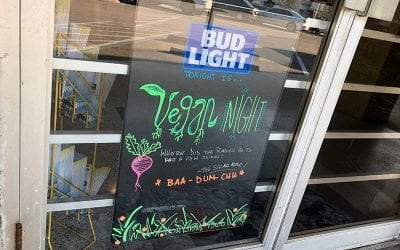 BUD
LIGHT
TONIGHT IS...
Vegan NIGHT
WHERE DID THE RADISH GO TO
HAVE A FEW DRINKS?
-THE SALAD BAR!
* BAA-DUN-CHH *